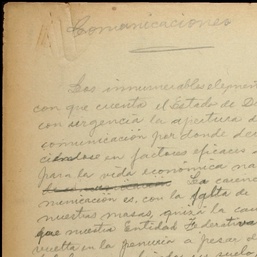 Comunicaciones
Los innumerables elemen
con que cuenta el Estado de D
con urgencia la apertura d
comunicación por donde de
ciéndose en factores eficaces
para la vida económica na
La caren
municación es, con la falta de
nuestras masas, quizá la cau
que nuestra Entidad Federativa
vuelta en la penuria a pesar d
su suelo